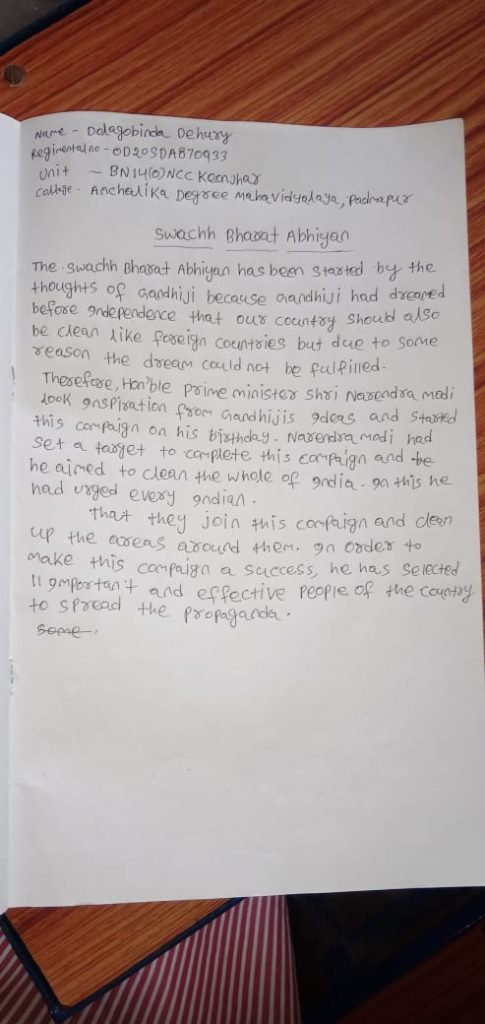 Name - Dolagobinda Dehury
Regimental no - OD20SDA870933
Unit - BN14(O)NCC Keonjhar
College - Anchalika Degree Mahavidyalaya, Padmapur
Swachh Bharat Abhiyan
The Swachh Bharat Abhiyan has been started by the
thoughts of Gandhiji because Gandhiji had dreamed
before Independence that our country should also
be clean like foreign countries but due to some
reason the dream could not be fulfilled.
Therefore, Hon'ble prime minister shri Narendra modi
look Inspiration from Gandhijis Ideas and started
this campaign on his birthday. Narendra modi had
set a target to complete this campaign and be
he aimed to clean the whole of India. In this he
had urged every Indian.
That they join this campaign and clean
up the areas around them. In order to
make this campaign a success, he has selected
11 Important and effective people of the country
to spread the propaganda.
some.